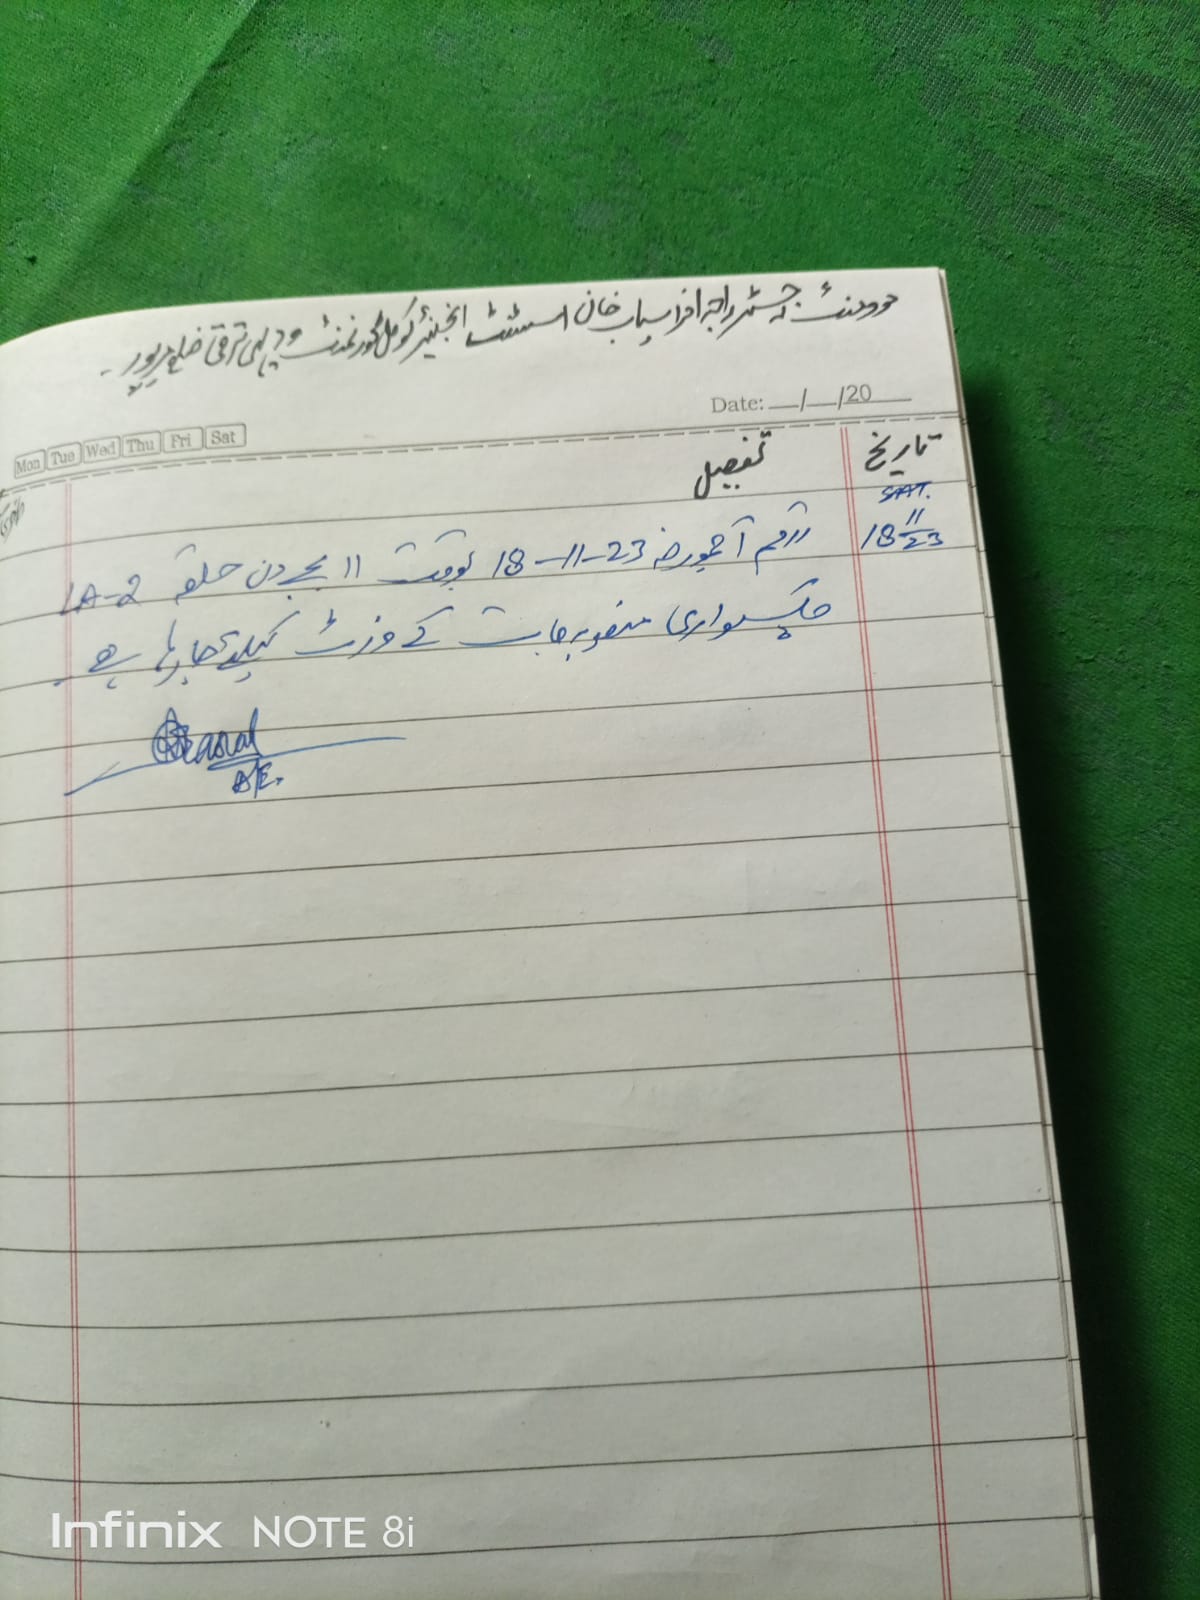 موومنٹ رجسٹر راجہ افراسیاب خان اسسٹنٹ انجینئر لوکل گورنمنٹ و دیہی ترقی ضلع میرپور۔
Date: __/__/20
Mon Tue Wed Thu Fri Sat
تاریخ تفصیل
SAT.
18 11/23 راقم آج مورخہ 18-11-23 بوقت 11 بجے دن حلقہ LA-2
چکسواری منصوبہ جات کے وزٹ کیلئے جا رہا ہے۔
A/E.
Infinix NOTE 8i